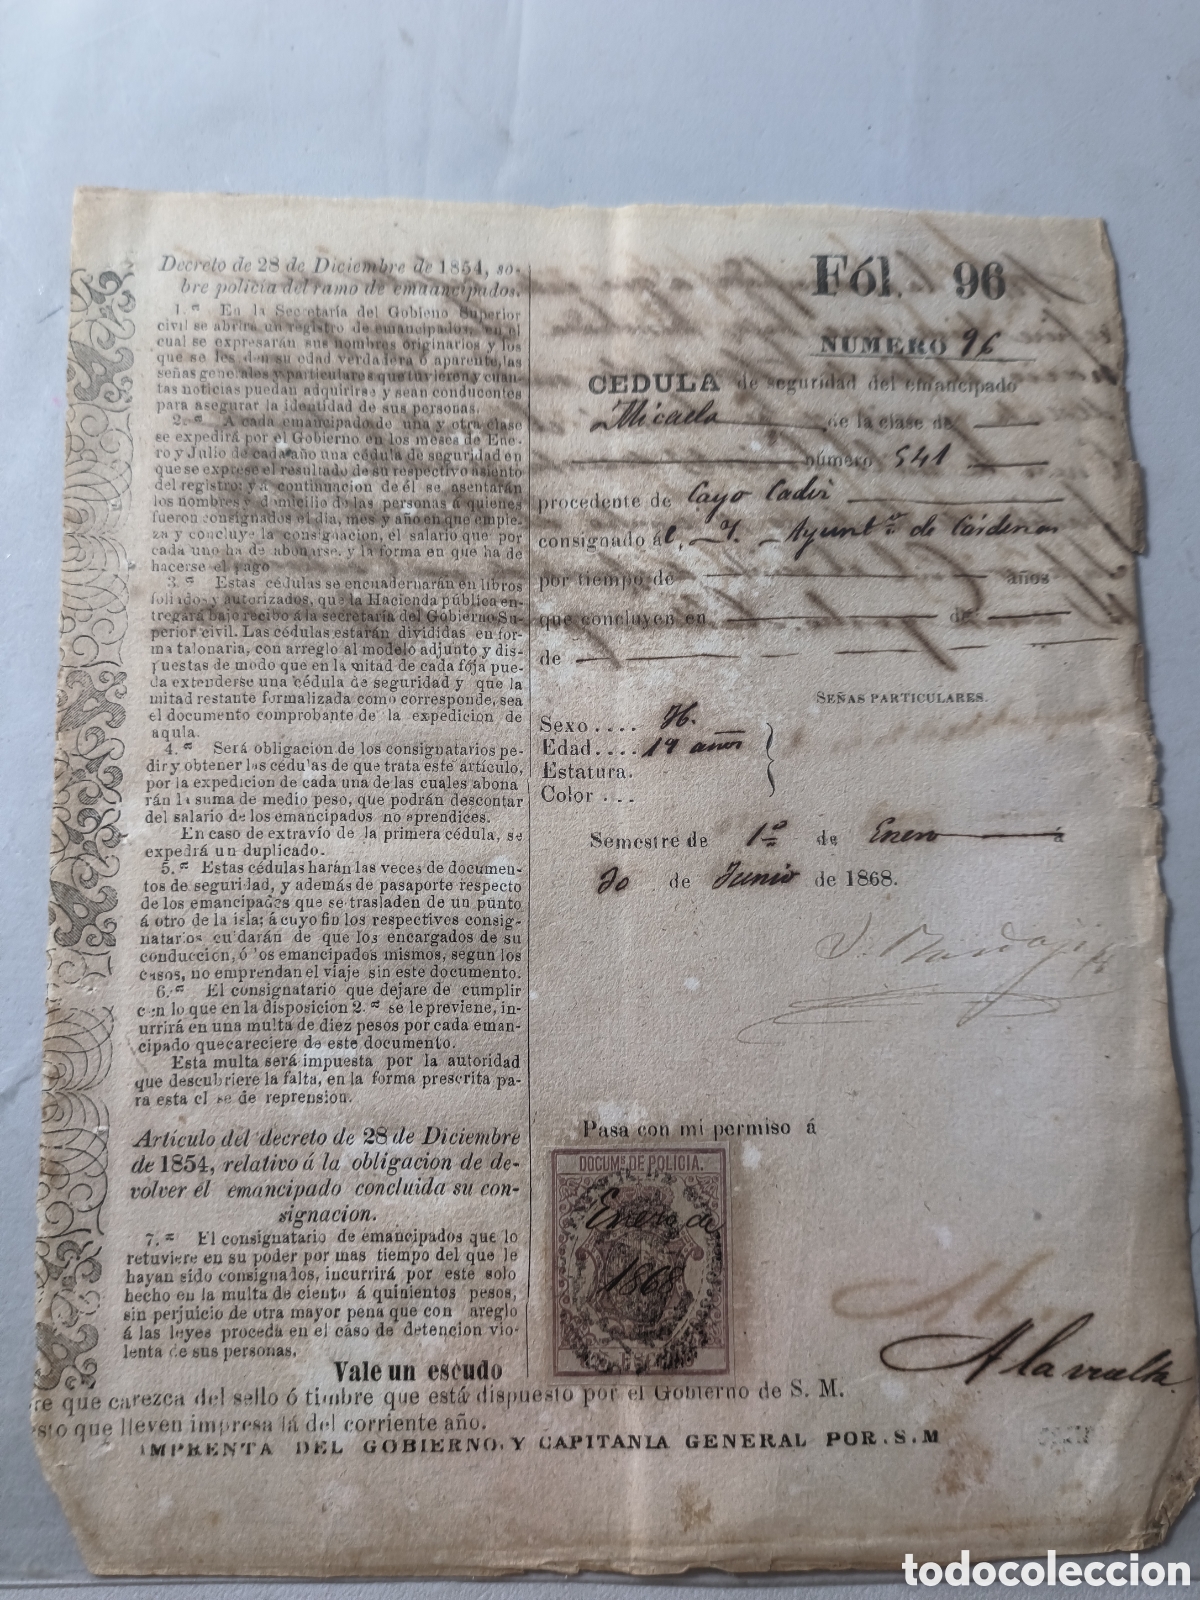 Decreto de 28 de Diciembre de 1854, so-
bre policia del ramo de emaancipados.
1.ª En la Secretaría del Gobieno Superior
civil se abrirá un registro de emancipados, en el
cual se expresarán sus nombres originarios y los
que se les den su edad verdadera ó aparente, las
señas generales y particulares que tuvieren y cuan-
tas noticias puedan adquirirse y sean conducentes
para asegurar la identidad de sus personas.
2.ª A cada emancipado de una y otra clase
se expedirá por el Gobierno en los meses de Ene-
ro y Julio de cada año una cédula de seguridad en
que se exprese el resultado de su respectivo asiento
del registro; y a continuacion de él se asentarán
los nombres y domicilio de las personas á quienes
fueron consignados el dia, mes y año en que empie-
za y concluye la consignacion, el salario que por
cada uno ha de abonarse, y la forma en que ha de
hacerse el pago
3.ª Estas cédulas se encuadernarán en libros
foliados y autorizados, que la Hacienda pública en-
tregará bajo recibo á la secretaría del Gobierno Su-
perior civil. Las cédulas estarán divididas en for-
ma talonaria, con arreglo al modelo adjunto y dis-
puestas de modo que en la mitad de cada fója pue-
da extenderse una cédula de seguridad y que la
mitad restante formalizada como corresponde, sea
el documento comprobante de la expedicion de
aqula.
4.ª Será obligacion de los consignatarios pe-
dir y obtener las cédulas de que trata este artículo,
por la expedicion de cada una de las cuales abona
rán la suma de medio peso, que podrán descontar
del salario de los emancipados no aprendices.
En caso de extravío de la primera cédula, se
expedirá un duplicado.
5.ª Estas cédulas harán las veces de documen-
tos de seguridad, y además de pasaporte respecto
de los emancipades que se trasladen de un punto
á otro de la isla; á cuyo fin los respectives consig-
natarios cuidarán de que los encargados de su
conduccion, ó los emancipados mismos, segun los
casos, no emprendan el viaje sin este documento.
6.ª El consignatario que dejare de cumplir
con lo que en la disposicion 2.ª se le previene, in-
urrirá en una multa de diez pesos por cada eman-
cipado que careciere de este documento.
Esta multa será impuesta por la autoridad
que descubriere la falta, en la forma prescrita pa-
ra esta cl se de reprension.
Artículo del decreto de 28 de Diciembre
de 1854, relativo á la obligacion de de-
volver el emancipado concluida su con-
signacion.
7.ª El consignatario de emancipados que lo
retuviere en su poder por mas tiempo del que le
hayan sido consignados, incurrirá por este solo
hecho en la multa de ciento á quinientos pesos,
sin perjuicio de otra mayor pena que con areglo
á las leyes proceda en el caso de detencion vio-
lenta de sus personas.
Vale un escudo
Fól. 96
NUMERO 96
CEDULA de seguridad del emancipado
Micaela de la clase de
número 541
procedente de Cayo Cadis
consignado ál Y. Ayunt.º de Cárdenas
por tiempo de años
que concluyen en de
de
SEÑAS PARTICULARES.
Sexo .... H.
Edad.... 19 años
Estatura.
Color ...
Semestre de 1º de Enero á
30 de Junio de 1868.
Pasa con mi permiso á
DOCUM.S DE POLICIA.
Enero de
1868
A la vuelta
re que carezca del sello ó timbre que está dispuesto por el Gobierno de S. M.
sto que lleven impresa lá del corriente año.
IMPRENTA DEL GOBIERNO, Y CAPITANIA GENERAL POR. S. M
todocoleccion